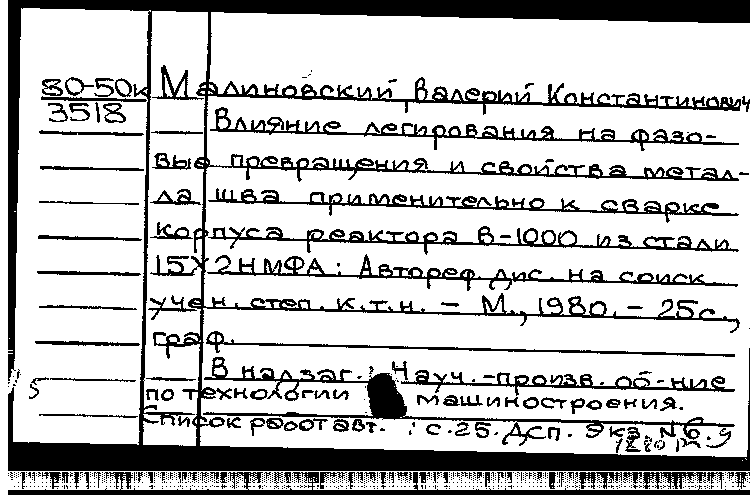 80-50к Малиновский Валерий Константинович
3518
Влияние легирования на фазо-
вые превращения и свойства метал-
ла шва применительно к сварке
корпуса реактора В-1000 из стали
15Х2НМФА: Автореф. дис. на соиск.
учен. степ. к.т.н. - М., 1980. - 25с.,
граф.
В надзаг.: Науч.-произв. об-ние
5 по технологии машиностроения.
Список работ авт.: с.25. Дсп. Экз. №